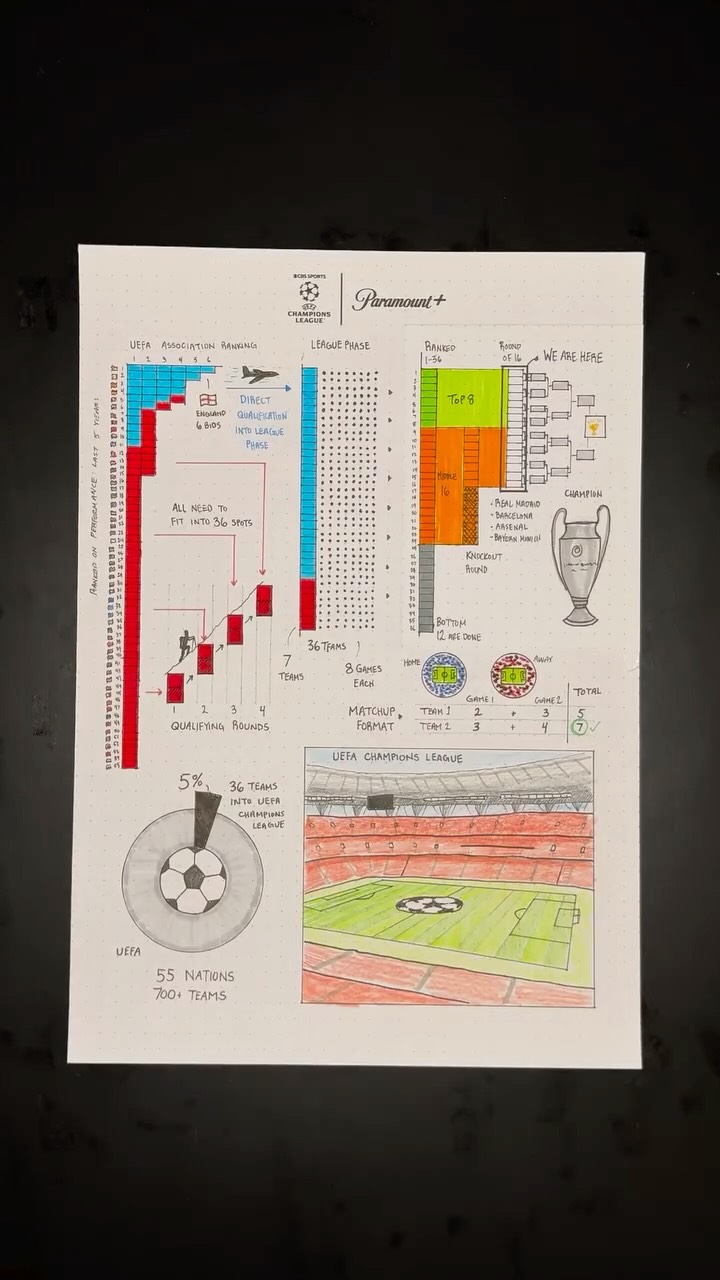 CBS SPORTS
UEFA
CHAMPIONS
LEAGUE
Paramount+
UEFA ASSOCIATION RANKING
1 2 3 4 5 6
RANKED ON PERFORMANCE: LAST 5 YEARS
ENGLAND
6 BIDS
DIRECT
QUALIFICATION
INTO LEAGUE
PHASE
ALL NEED TO
FIT INTO 36 SPOTS
1 2 3 4
QUALIFYING ROUNDS
LEAGUE PHASE
36 TEAMS
7
TEAMS
8 GAMES
EACH
RANKED
1-36
ROUND
OF 16
WE ARE HERE
TOP 8
MIDDLE
16
- REAL MADRID
- BARCELONA
- ARSENAL
- BAYERN MUNICH
KNOCKOUT
ROUND
BOTTOM
12 ARE DONE
CHAMPION
HOME
AWAY
GAME 1 GAME 2 TOTAL
MATCHUP
FORMAT
TEAM 1 2 + 3 5
TEAM 2 3 + 4 7
5%
36 TEAMS
INTO UEFA
CHAMPIONS
LEAGUE
UEFA
55 NATIONS
700+ TEAMS
UEFA CHAMPIONS LEAGUE